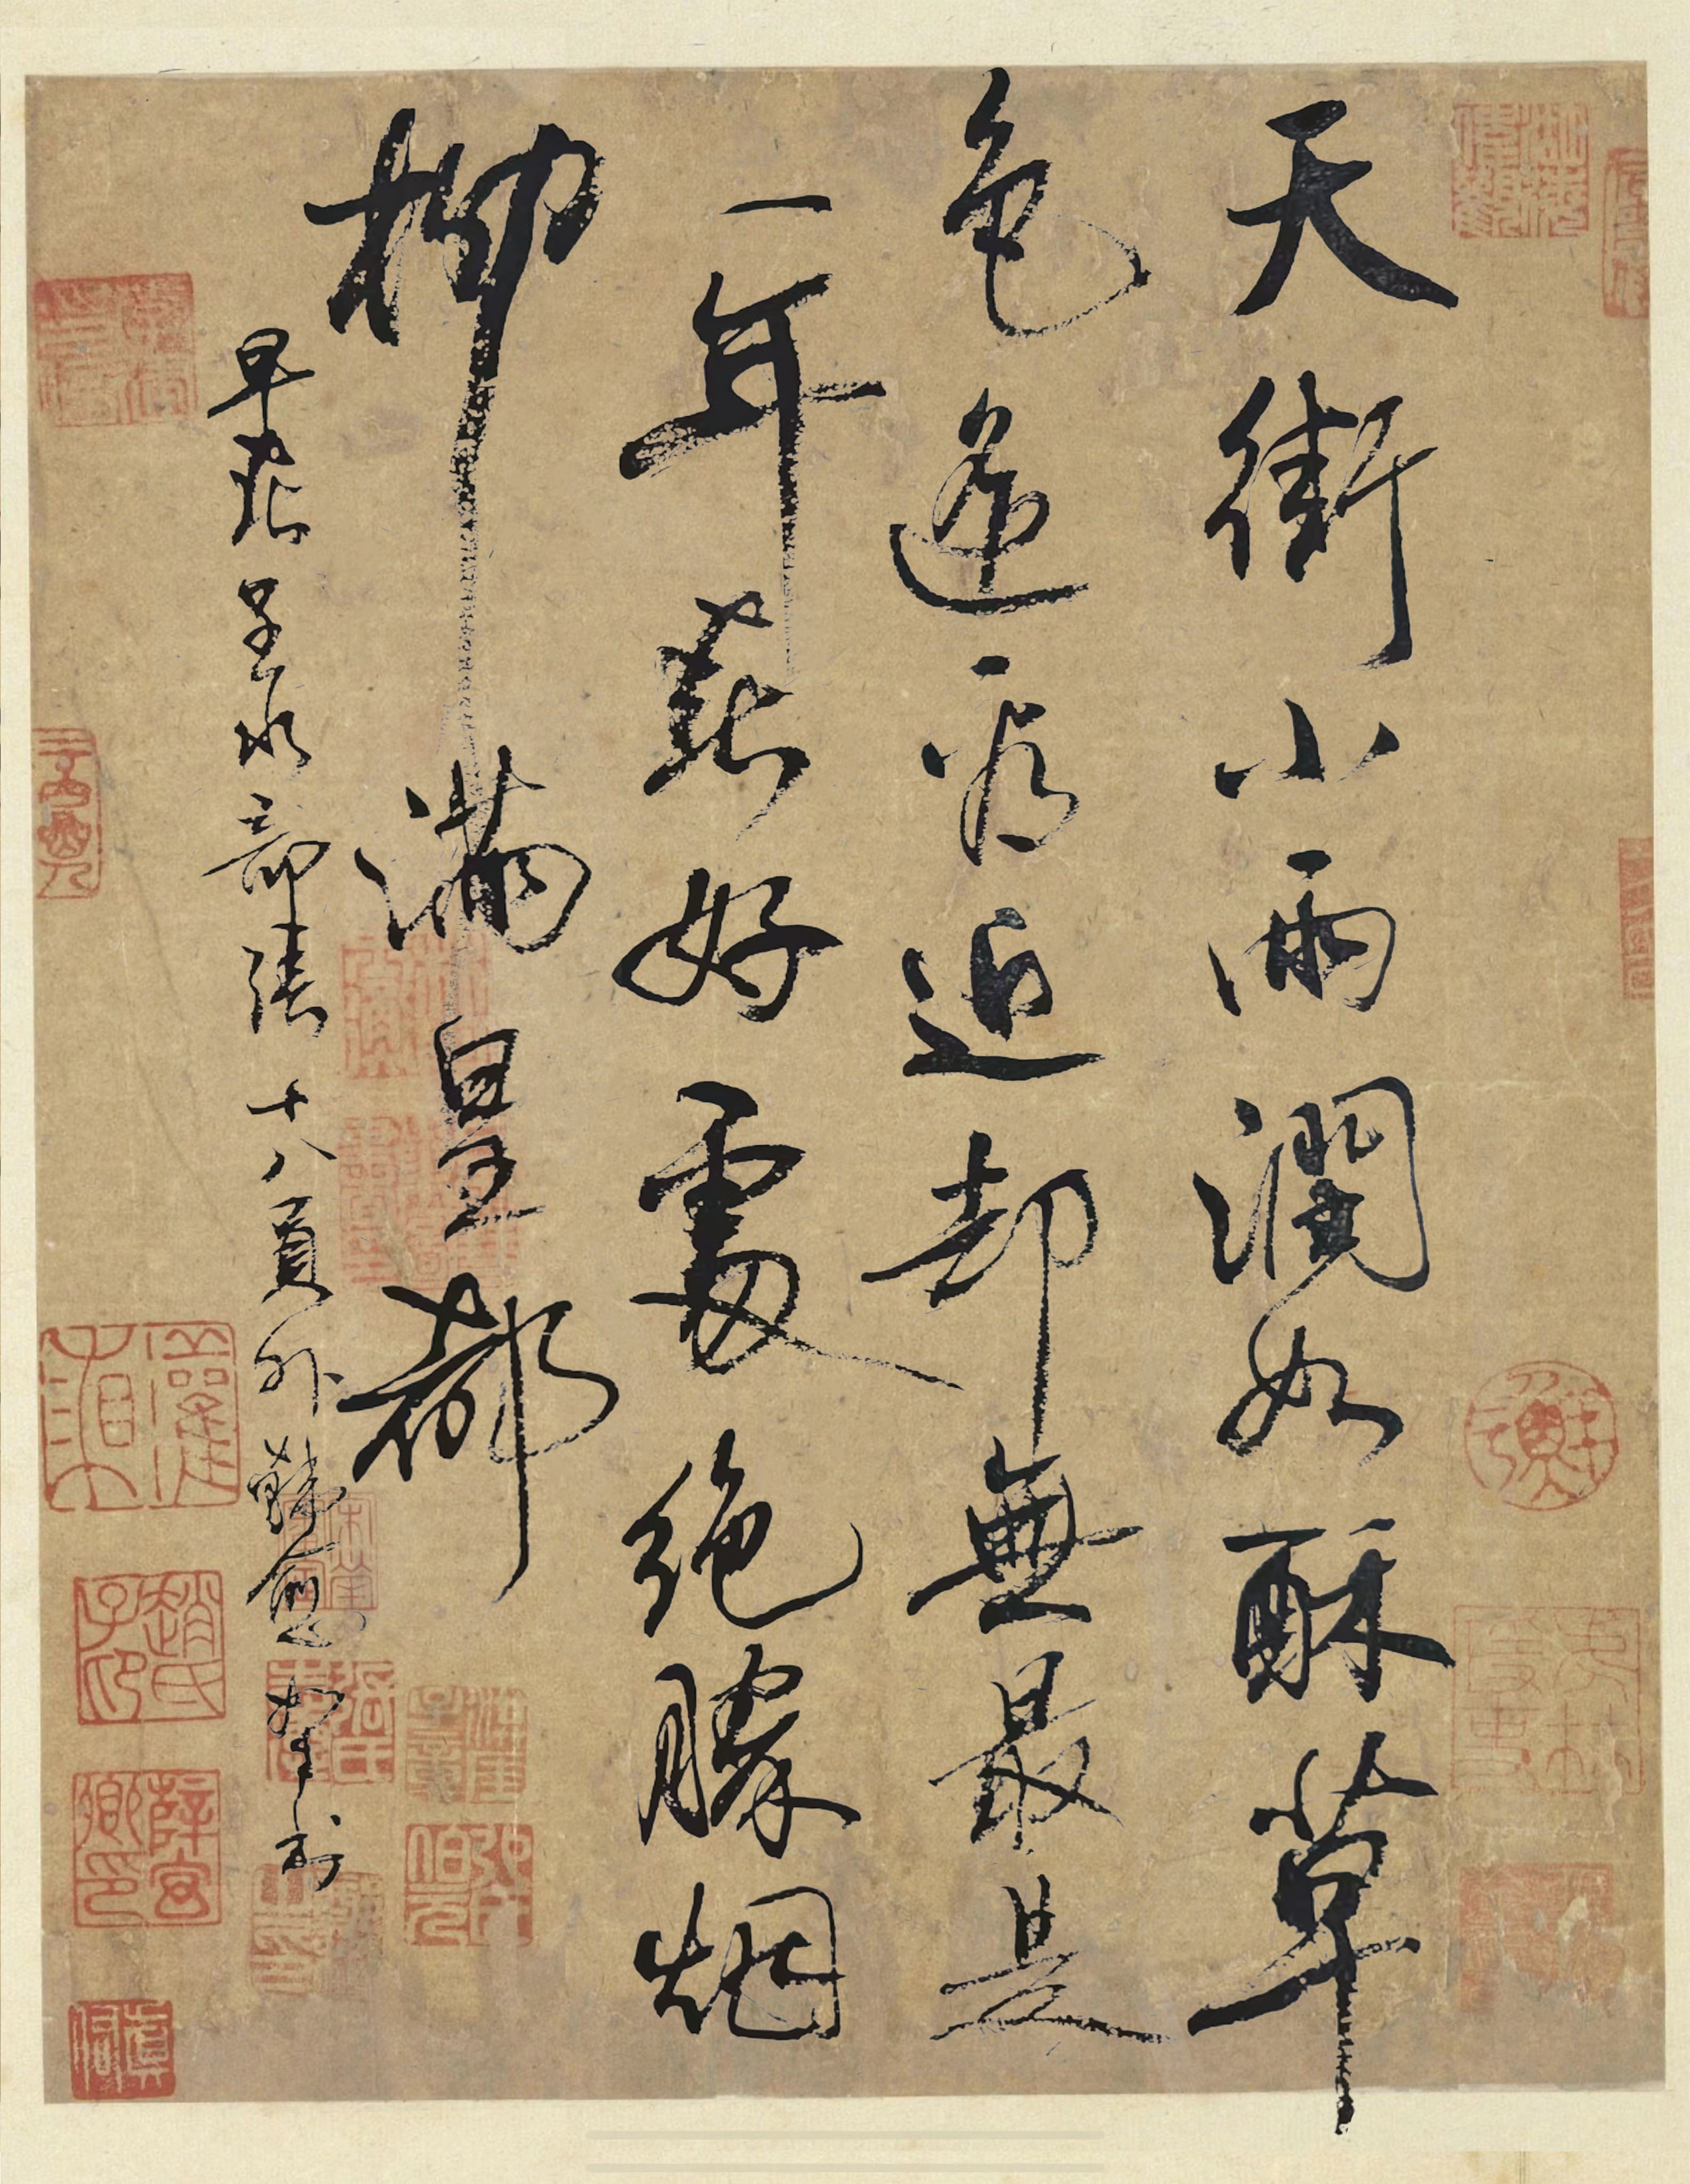 天街小雨潤如酥草
色遥看近却無最是
一年春好處絶勝烟
柳滿皇都
早春呈水部張十八員外韓愈
趙氏子印